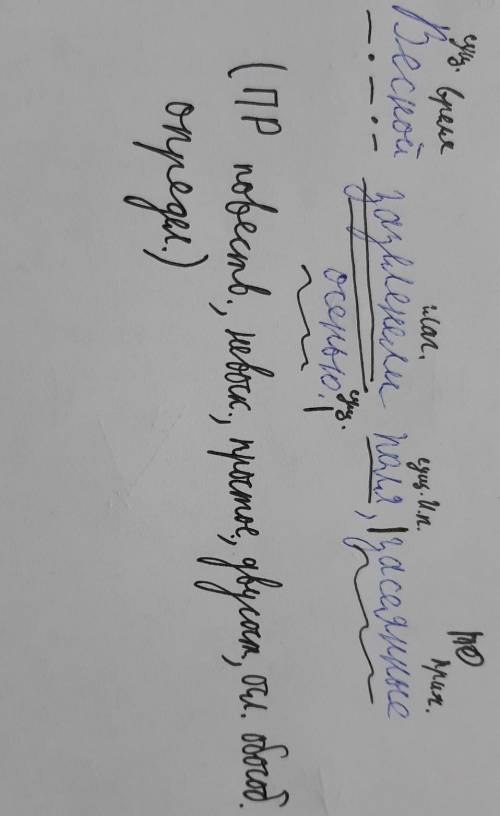 сущ. время глаг. сущ. И.п. ПО прич.
Весной зазеленели поля, засеянные
сущ.
осенью.
(ПР повеств., невоск., простое, двусост, осл. обособ.
определ.)